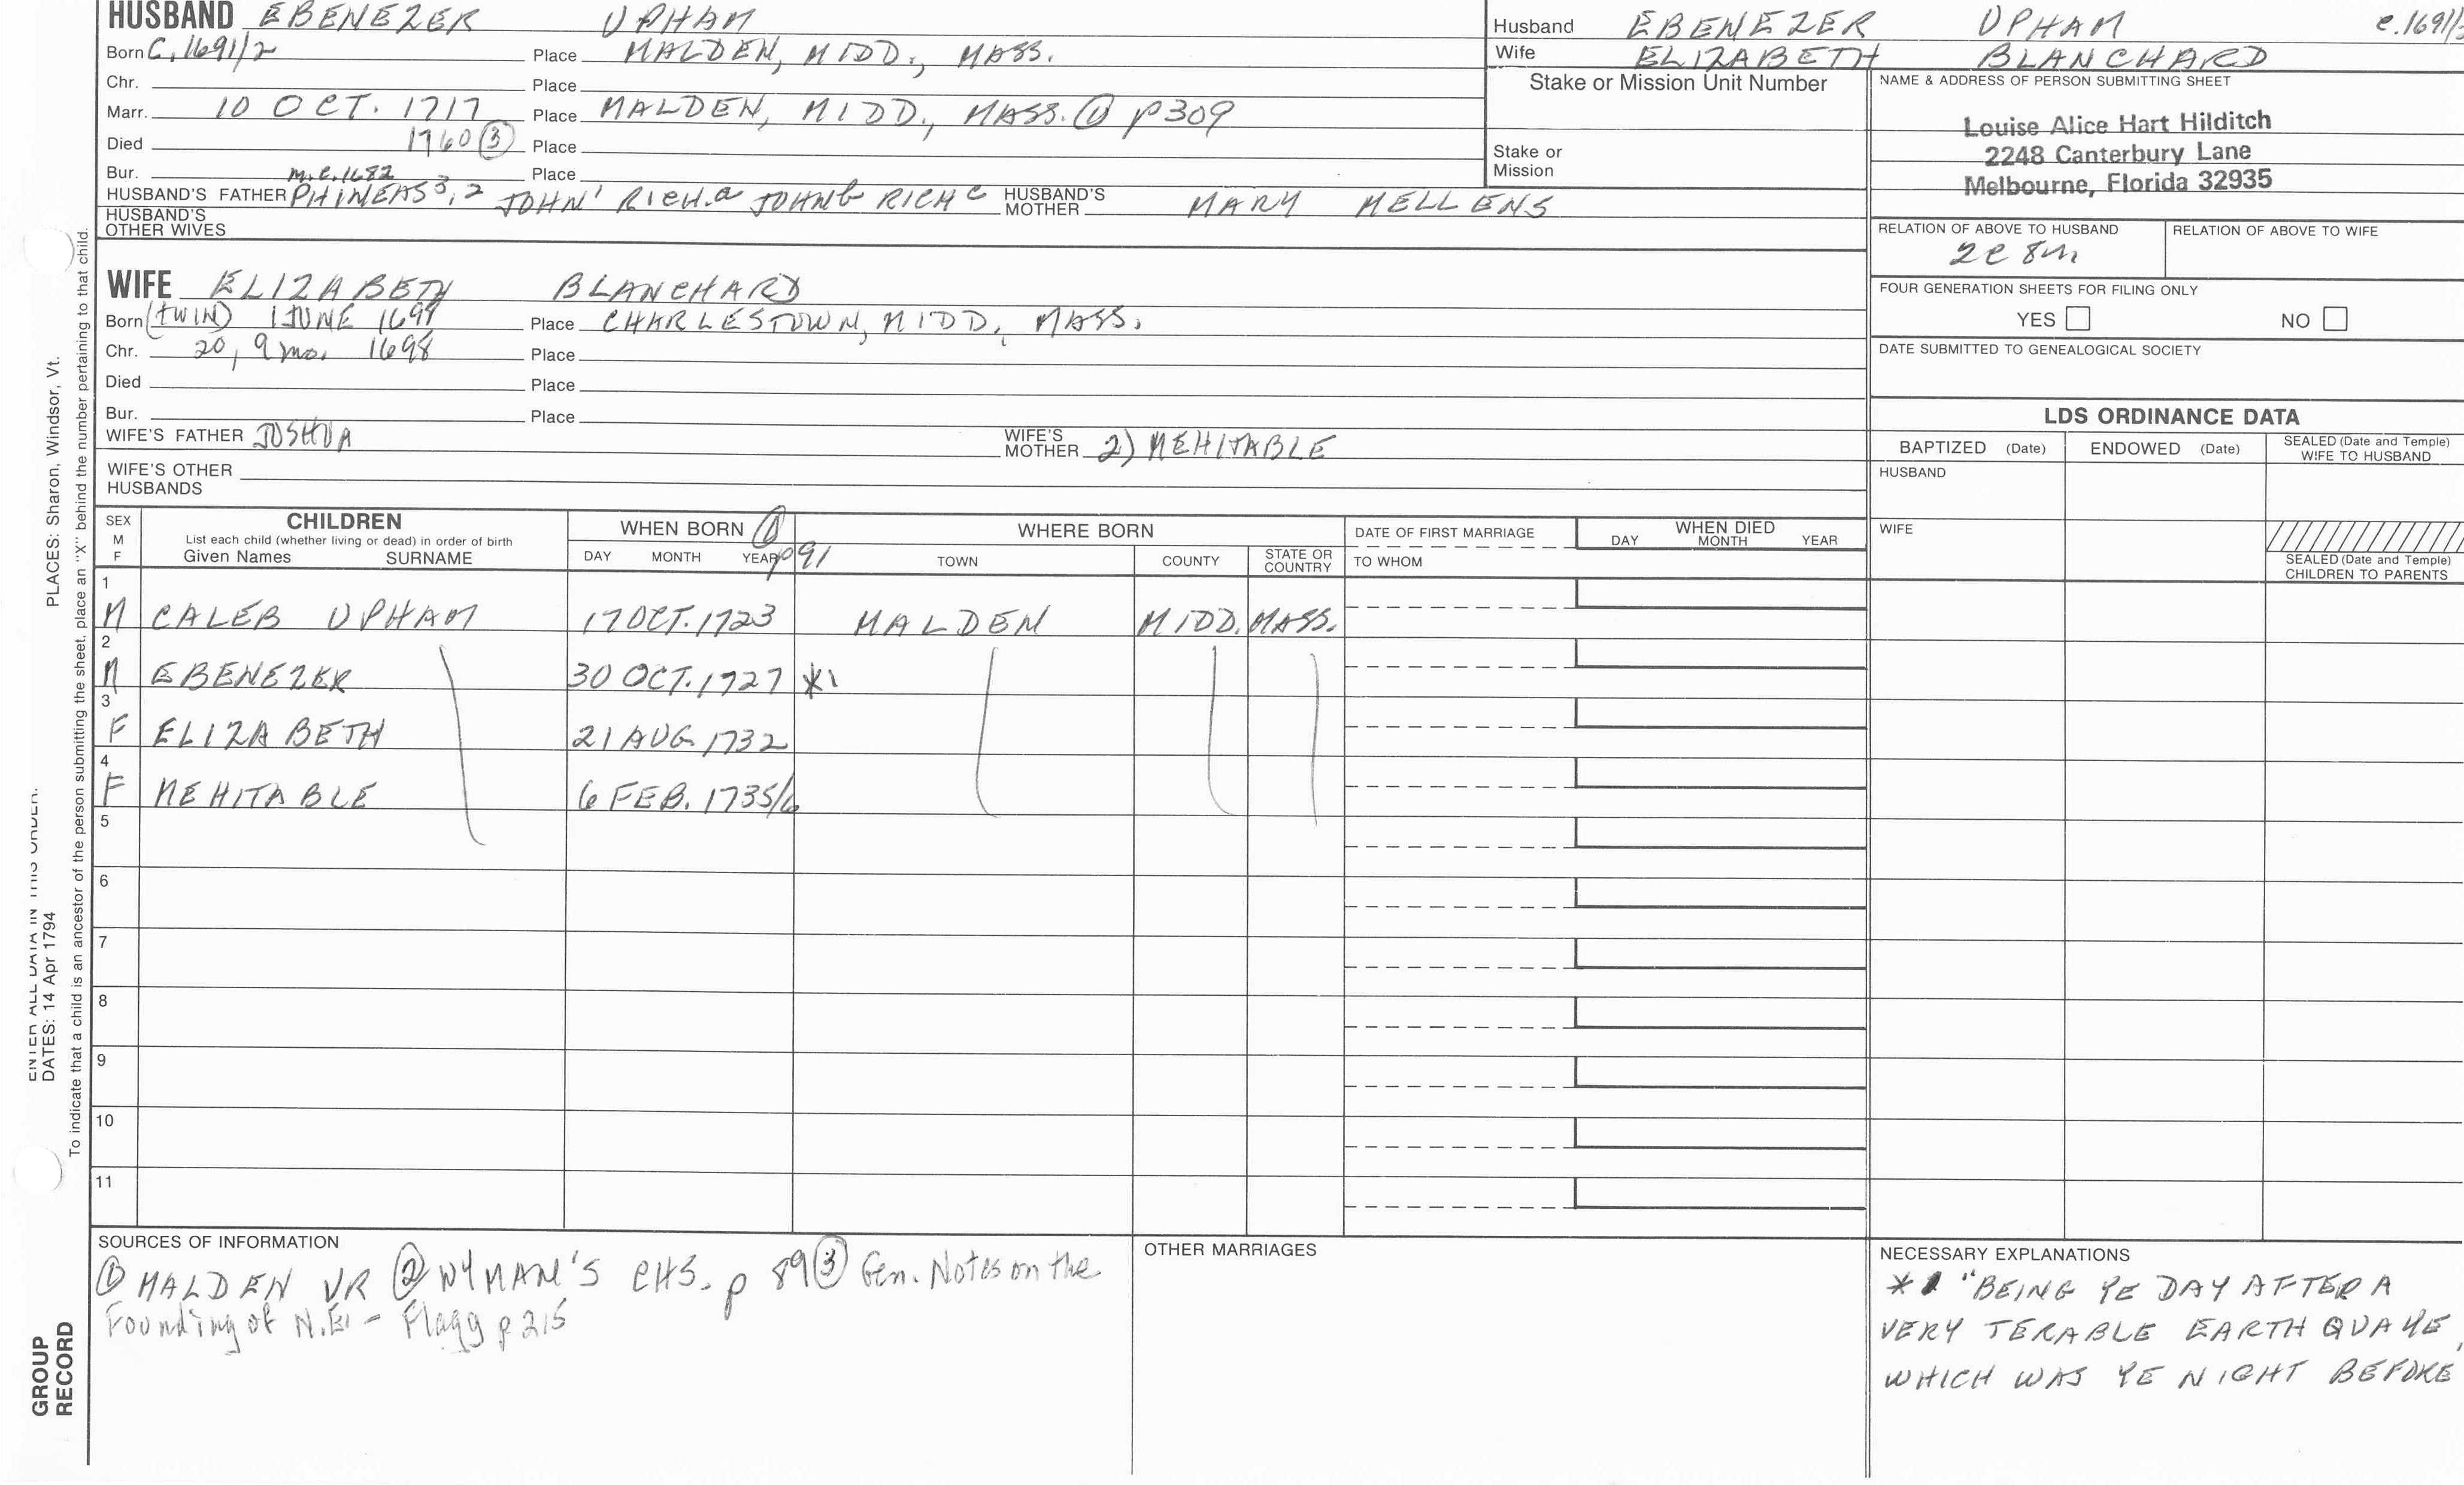 HUSBAND EBENEZER UPHAM
Born C. 1691/2 Place MALDEN, MIDD., MASS.
Chr. Place
Marr. 10 OCT. 1717 Place MALDEN, MIDD., MASS. ① p309
Died 1760 ③ Place
Bur. Place
m.c.1682
HUSBAND'S FATHER PHINEAS 3,2 JOHN 1 RICH.a JOHN b RICH c HUSBAND'S MOTHER MARY MELLENS
HUSBAND'S OTHER WIVES
WIFE ELIZABETH BLANCHARD
Born (TWIN) 1 JUNE 1698 Place CHARLESTOWN, MIDD., MASS.
Chr. 20, 9 mo. 1698 Place
Died Place
Bur. Place
WIFE'S FATHER JOSHUA WIFE'S MOTHER 2) MEHITABLE
WIFE'S OTHER HUSBANDS
Husband EBENEZER UPHAM c.1691/
Wife ELIZABETH BLANCHARD
Stake or Mission Unit Number
Stake or Mission
NAME & ADDRESS OF PERSON SUBMITTING SHEET
Louise Alice Hart Hilditch
2248 Canterbury Lane
Melbourne, Florida 32935
RELATION OF ABOVE TO HUSBAND RELATION OF ABOVE TO WIFE
2c 8m
FOUR GENERATION SHEETS FOR FILING ONLY
YES NO
DATE SUBMITTED TO GENEALOGICAL SOCIETY
LDS ORDINANCE DATA
BAPTIZED (Date) ENDOWED (Date) SEALED (Date and Temple) WIFE TO HUSBAND
HUSBAND
WIFE
SEALED (Date and Temple) CHILDREN TO PARENTS
SEX M F CHILDREN WHEN BORN ① WHERE BORN DATE OF FIRST MARRIAGE WHEN DIED
List each child (whether living or dead) in order of birth
Given Names SURNAME DAY MONTH YEAR p91 TOWN COUNTY STATE OR COUNTRY TO WHOM DAY MONTH YEAR
1 M CALEB UPHAM 17 OCT. 1723 MALDEN MIDD. MASS.
2 M EBENEZER 30 OCT. 1727 *1
3 F ELIZABETH 21 AUG 1732
4 F MEHITABLE 6 FEB. 1735/6
5
6
7
8
9
10
11
SOURCES OF INFORMATION
① MALDEN VR ② WYMAN'S CHS. p 89 ③ Gen. Notes on the
Founding of N.E. - Flagg p 215
OTHER MARRIAGES
NECESSARY EXPLANATIONS
*1 "BEING YE DAY AFTER A
VERY TERABLE EARTH QUAKE,
WHICH WAS YE NIGHT BEFORE
ENTER ALL DATA IN THIS ORDER:
DATES: 14 Apr 1794
PLACES: Sharon, Windsor, Vt.
To indicate that a child is an ancestor of the person submitting the sheet, place an "X" behind the number pertaining to that child.
GROUP
RECORD